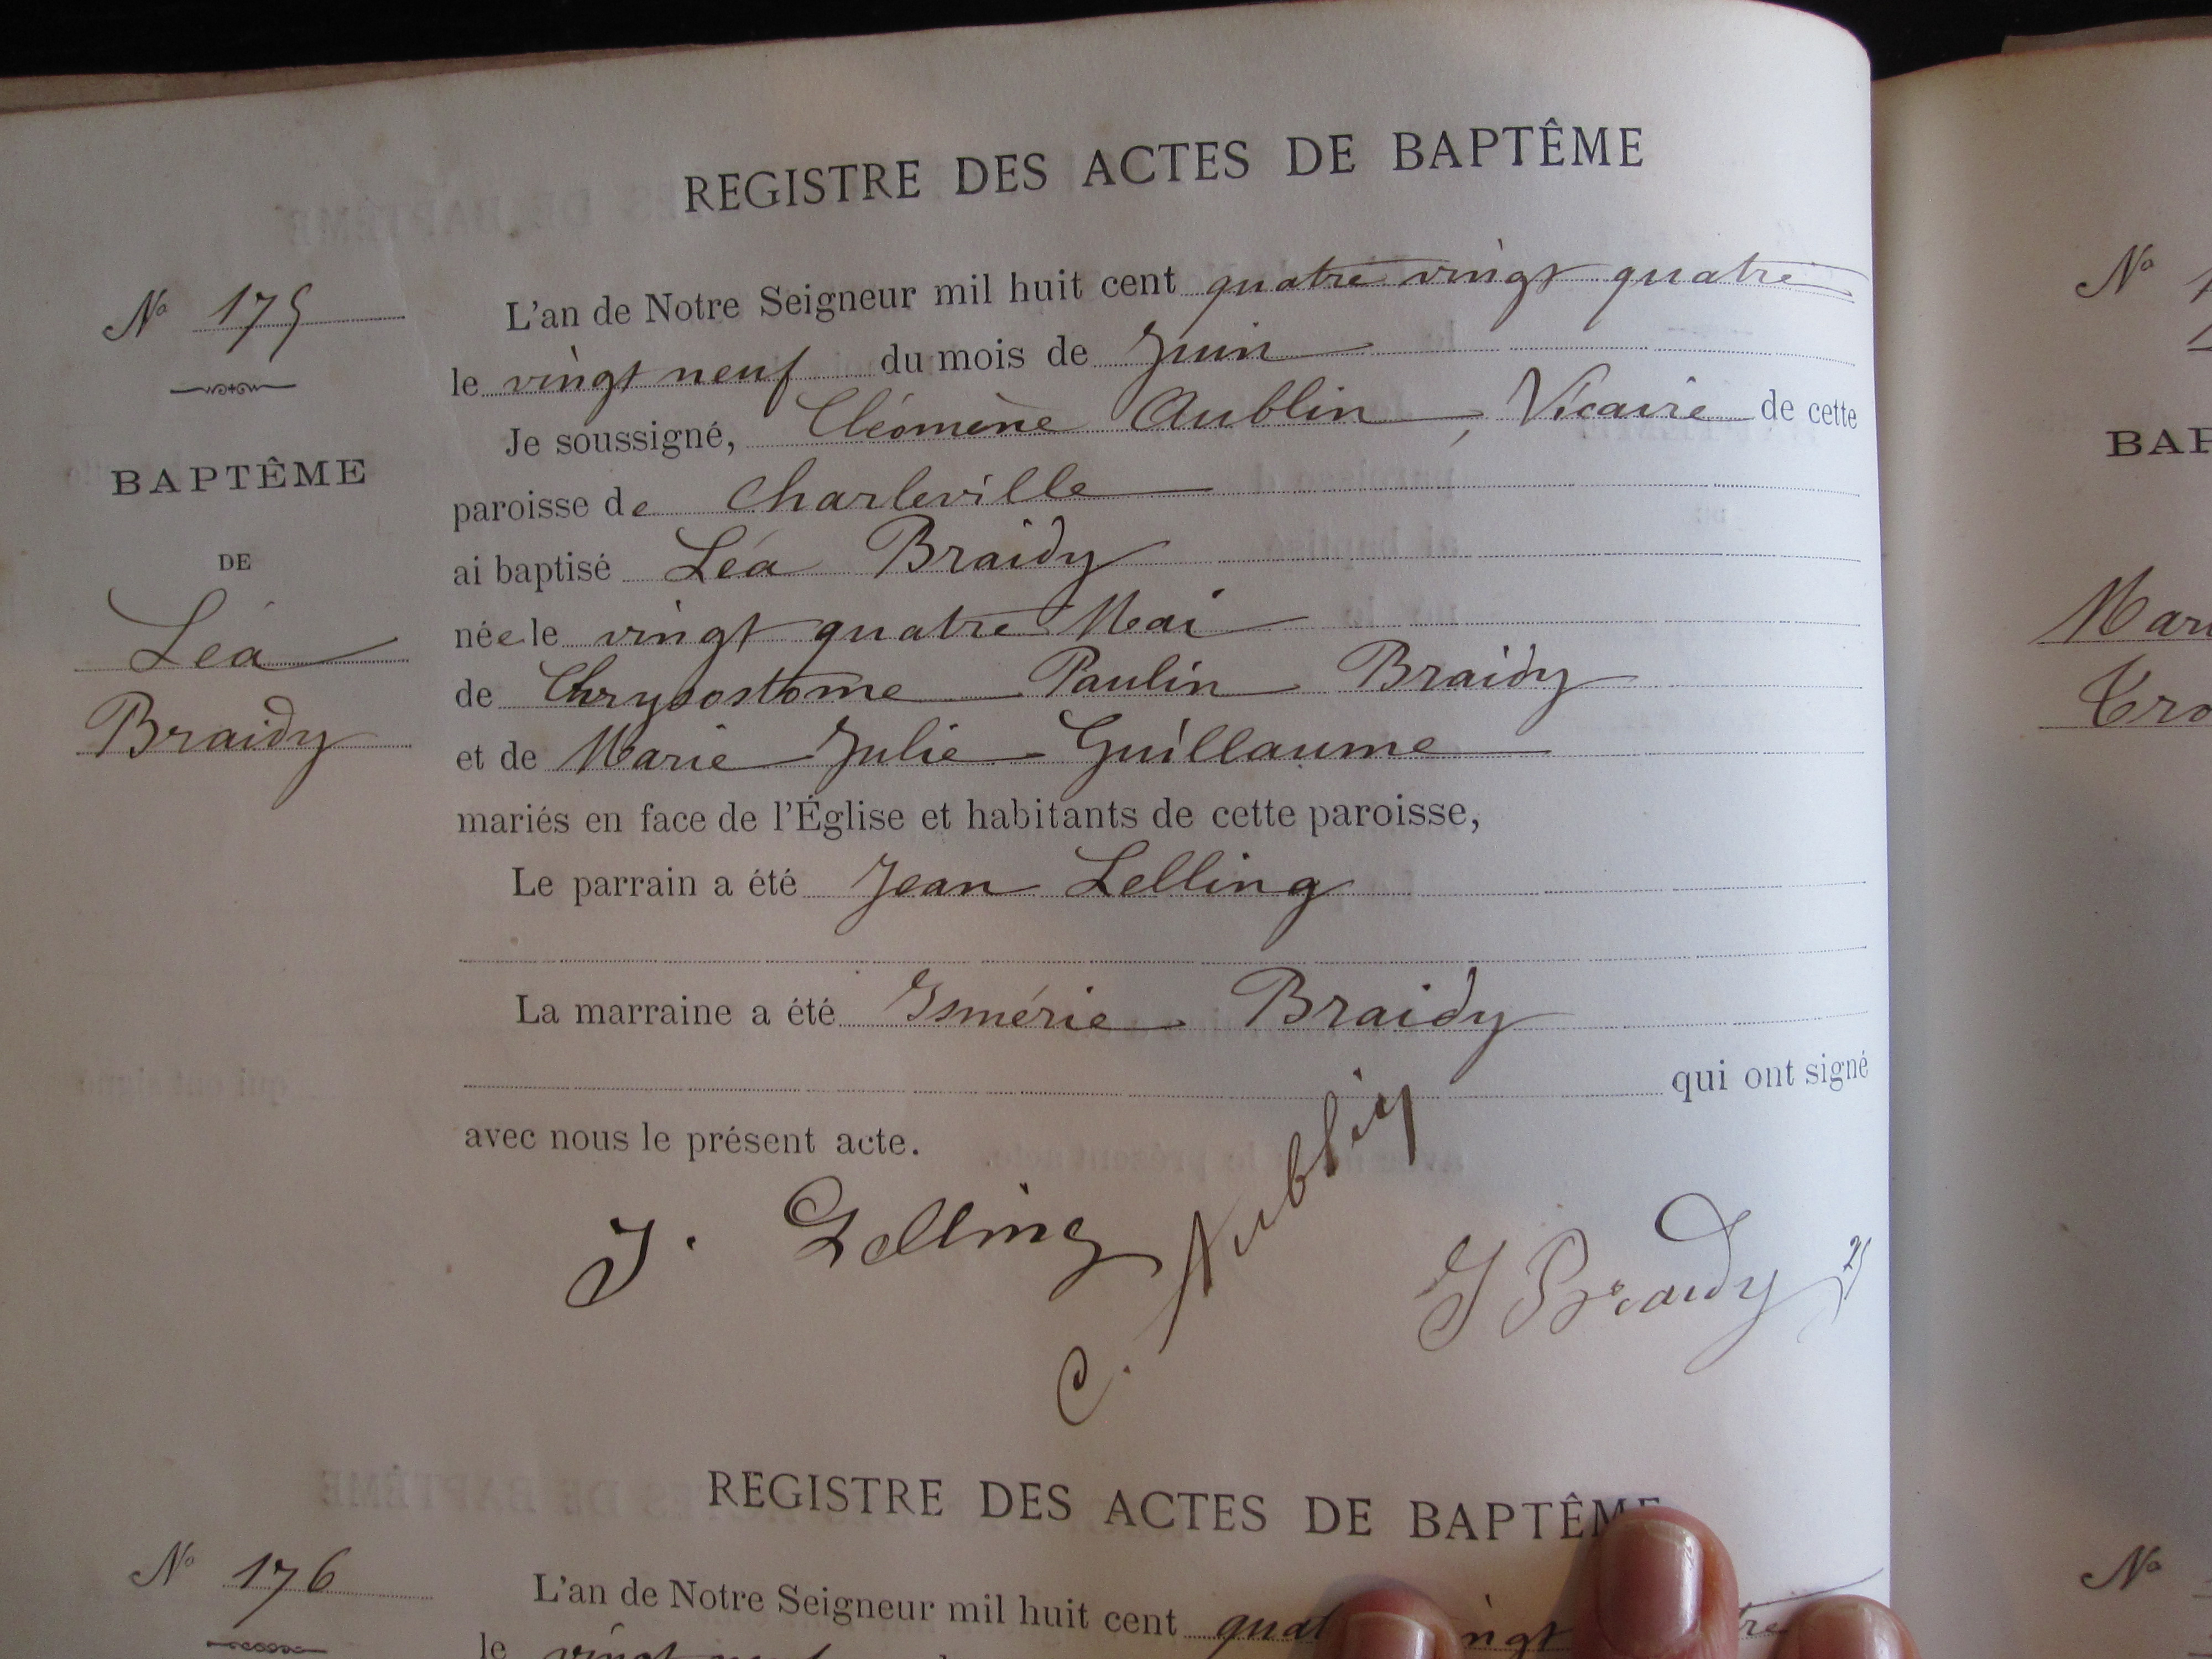 REGISTRE DES ACTES DE BAPTÊME
Nº 175
BAPTÊME
DE
Léa
Braidy
L'an de Notre Seigneur mil huit cent quatre vingt quatre
le vingt neuf du mois de Juin
Je soussigné, Cléomène Aublin, Vicaire de cette
paroisse de Charleville
ai baptisé Léa Braidy
née le vingt quatre Mai
de Chrysostome Paulin Braidy
et de Marie Julie Guillaume
mariés en face de l'Église et habitants de cette paroisse,
Le parrain a été Jean Lelling
La marraine a été Ismérie Braidy
qui ont signé
avec nous le présent acte.
J. Lelling
C. Aublin
I Braidy
REGISTRE DES ACTES DE BAPTÊME
Nº 176
L'an de Notre Seigneur mil huit cent
le vingt neuf
Nº
BAP
Mar
Cro
Nº